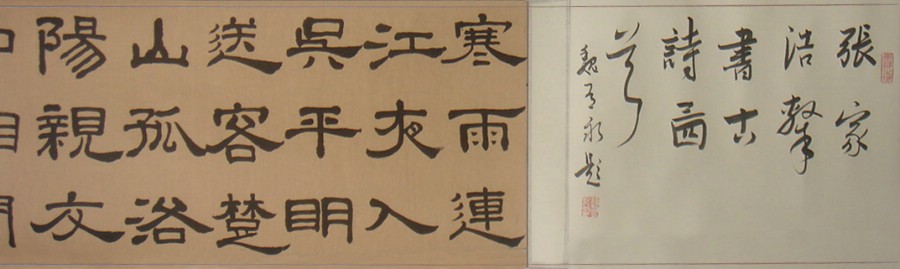 張家
浩
書古
詩
魏永題
寒雨連
江夜入
吳平明
送客楚
山孤洛
陽親友
如相問